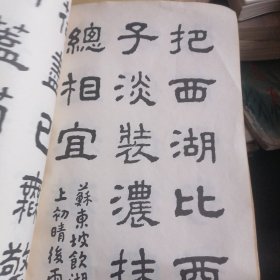 把西湖比西
子淡裝濃抹
總相宜
蘇東坡飲湖
上初晴後雨
盡已
蓋菊